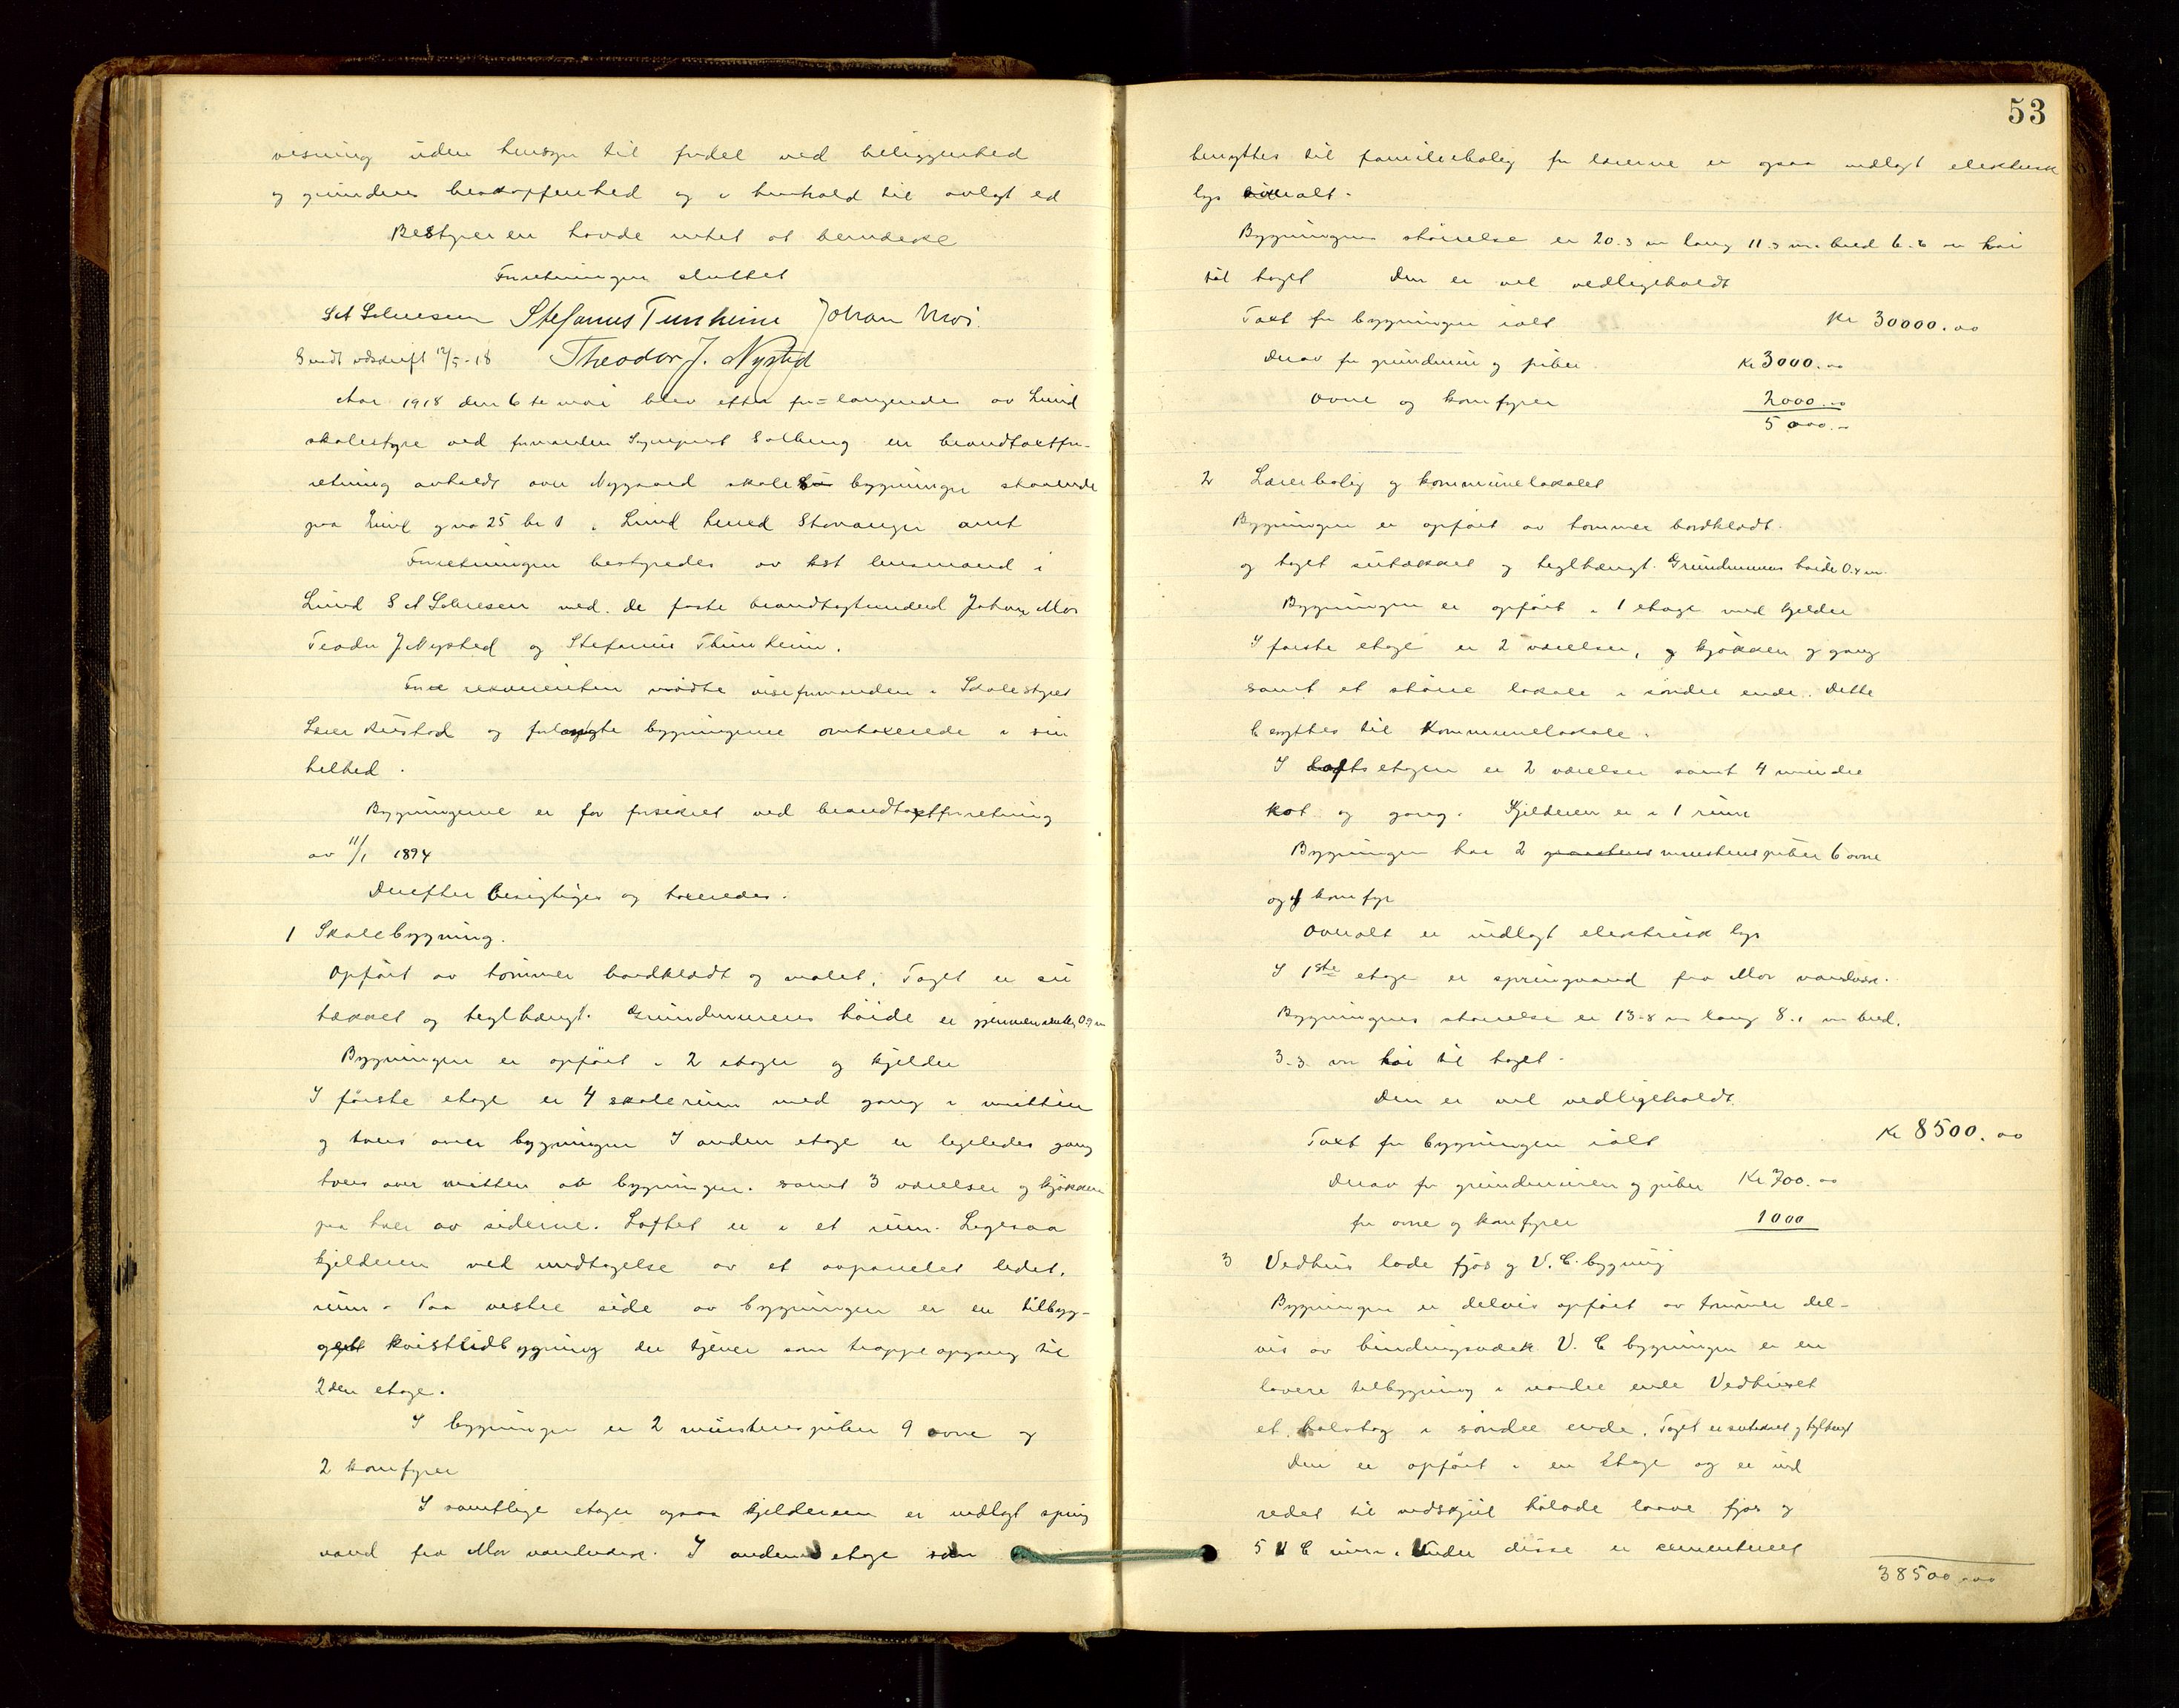 visning uden hensyn til fordel ved beliggenhed
og grundens beskaffenhed og i henhold til avlagt ed
Bestyreren havde intet at bemerke
Forretningen sluttet
S A Stefanus Tunheim Johan Moi.
Sendt udskrift 12/5-18 Theodor J. Nysted
Aar 1918 den 6te mai blev efter for=langende av Lund
skolestyre ved formanden Sogneprest Solberg en brandtaxtfor-
retning avholdt over Nygaard skoles bygninger staaende
paa gno 25 br 1 i Lund herred Stavanger amt
Forretningen bestyredes av kst lensmand i
Lund S A med de faste brandtagtmænd Johan Moi
Teodor J Nysted og Stefanus Thunheim.
For rekvirenten mødte viseformanden i Skolestyret
Lærer Austad og forlangte bygningerne omtaxerede i sin
helhed.
Bygningerne er før forsikret ved brandtaxtforretning
av 11/1 1894
Derefter besigtiges og taxeredes.
1 Skolebygning.
Opført av tømmer bordklædt og malet. Taget er su
tækket og teglhængt. Grundmurens høide er gjennemsnitlig 0.9 m
Bygningen er opført i 2 etager og kjelder
I første etage er 4 skolerum med gang i mitten
og tvers over bygningen I anden etage er ligeledes gang
tvers over mitten av bygningen. samt 3 værelser og kjøkken
paa hver av siderne. Loftet er i et rum. Ligesaa
kjelderen med undtagelse av et avpanelet lidet.
rum. Paa vestre side av bygningen er en tilbyg-
get kvistbygning der tjener som trappeopgang til
2den etage.
I bygningen er 2 murstenspiber 9 ovne og
2 komfyrer
I samtlige etager ogsaa kjelderen er indlagt spring
vand fra Moi vandverk. I anden etage som
53
benyttes til familiebolig for lærerne er ogsaa indlagt elektrisk
lys overalt.
Bygningens størrelse er 20.3 m lang 11.3 m bred 6.6 m høi
til taget Den er vel vedligeholdt
Taxt for bygningen ialt Kr 30000.00
Derav for grundmur og piber Kr 3000.00
Ovne og komfyrer 2000.00
5000.00
2 Lærerbolig og kommunelokalet
Bygningen er opført av tømmer bordklædt.
og taget sutækket og teglhængt. Grundmurens høide 0.4 m.
Bygningen er opført i 1 etage med kjelder
I første etage er 2 værelser, og kjøkken og gang
samt et større lokale i søndre ende. Dette
benyttes til Kommunelokale.
I Loftsetagen er 2 værelser samt 4 mindre
kot og gang. Kjelderen er i 1 rum
Bygningen har 2 murstenspiber 6 ovne
og 1 komfyr
Overalt er indlagt elektrisk lys
I 1ste etage er springvand fra Moi vandverk.
Bygningens størrelse er 13.8 m lang 8.1 m bred.
3.3 m høi til taget.
Den er vel vedligeholdt.
Taxt for bygningen ialt Kr 8500.00
Derav for grundmuren og piber Kr 700.00
for ovne og komfyrer 1000
3 Vedhus lade fjøs og V.C. bygning
Bygningen er delvis opført av tømmer del-
vis av bindingsverk V.C bygningen er en
lavere tilbygning i nordre ende Vedhuset
et halvtag i søndre ende. Taget er sutækket og teglhængt
Den er opført i en etage og er ind
redet til vedskjul høilade laave fjøs og
5 V C rum. Under disse er cementeret
38500.00